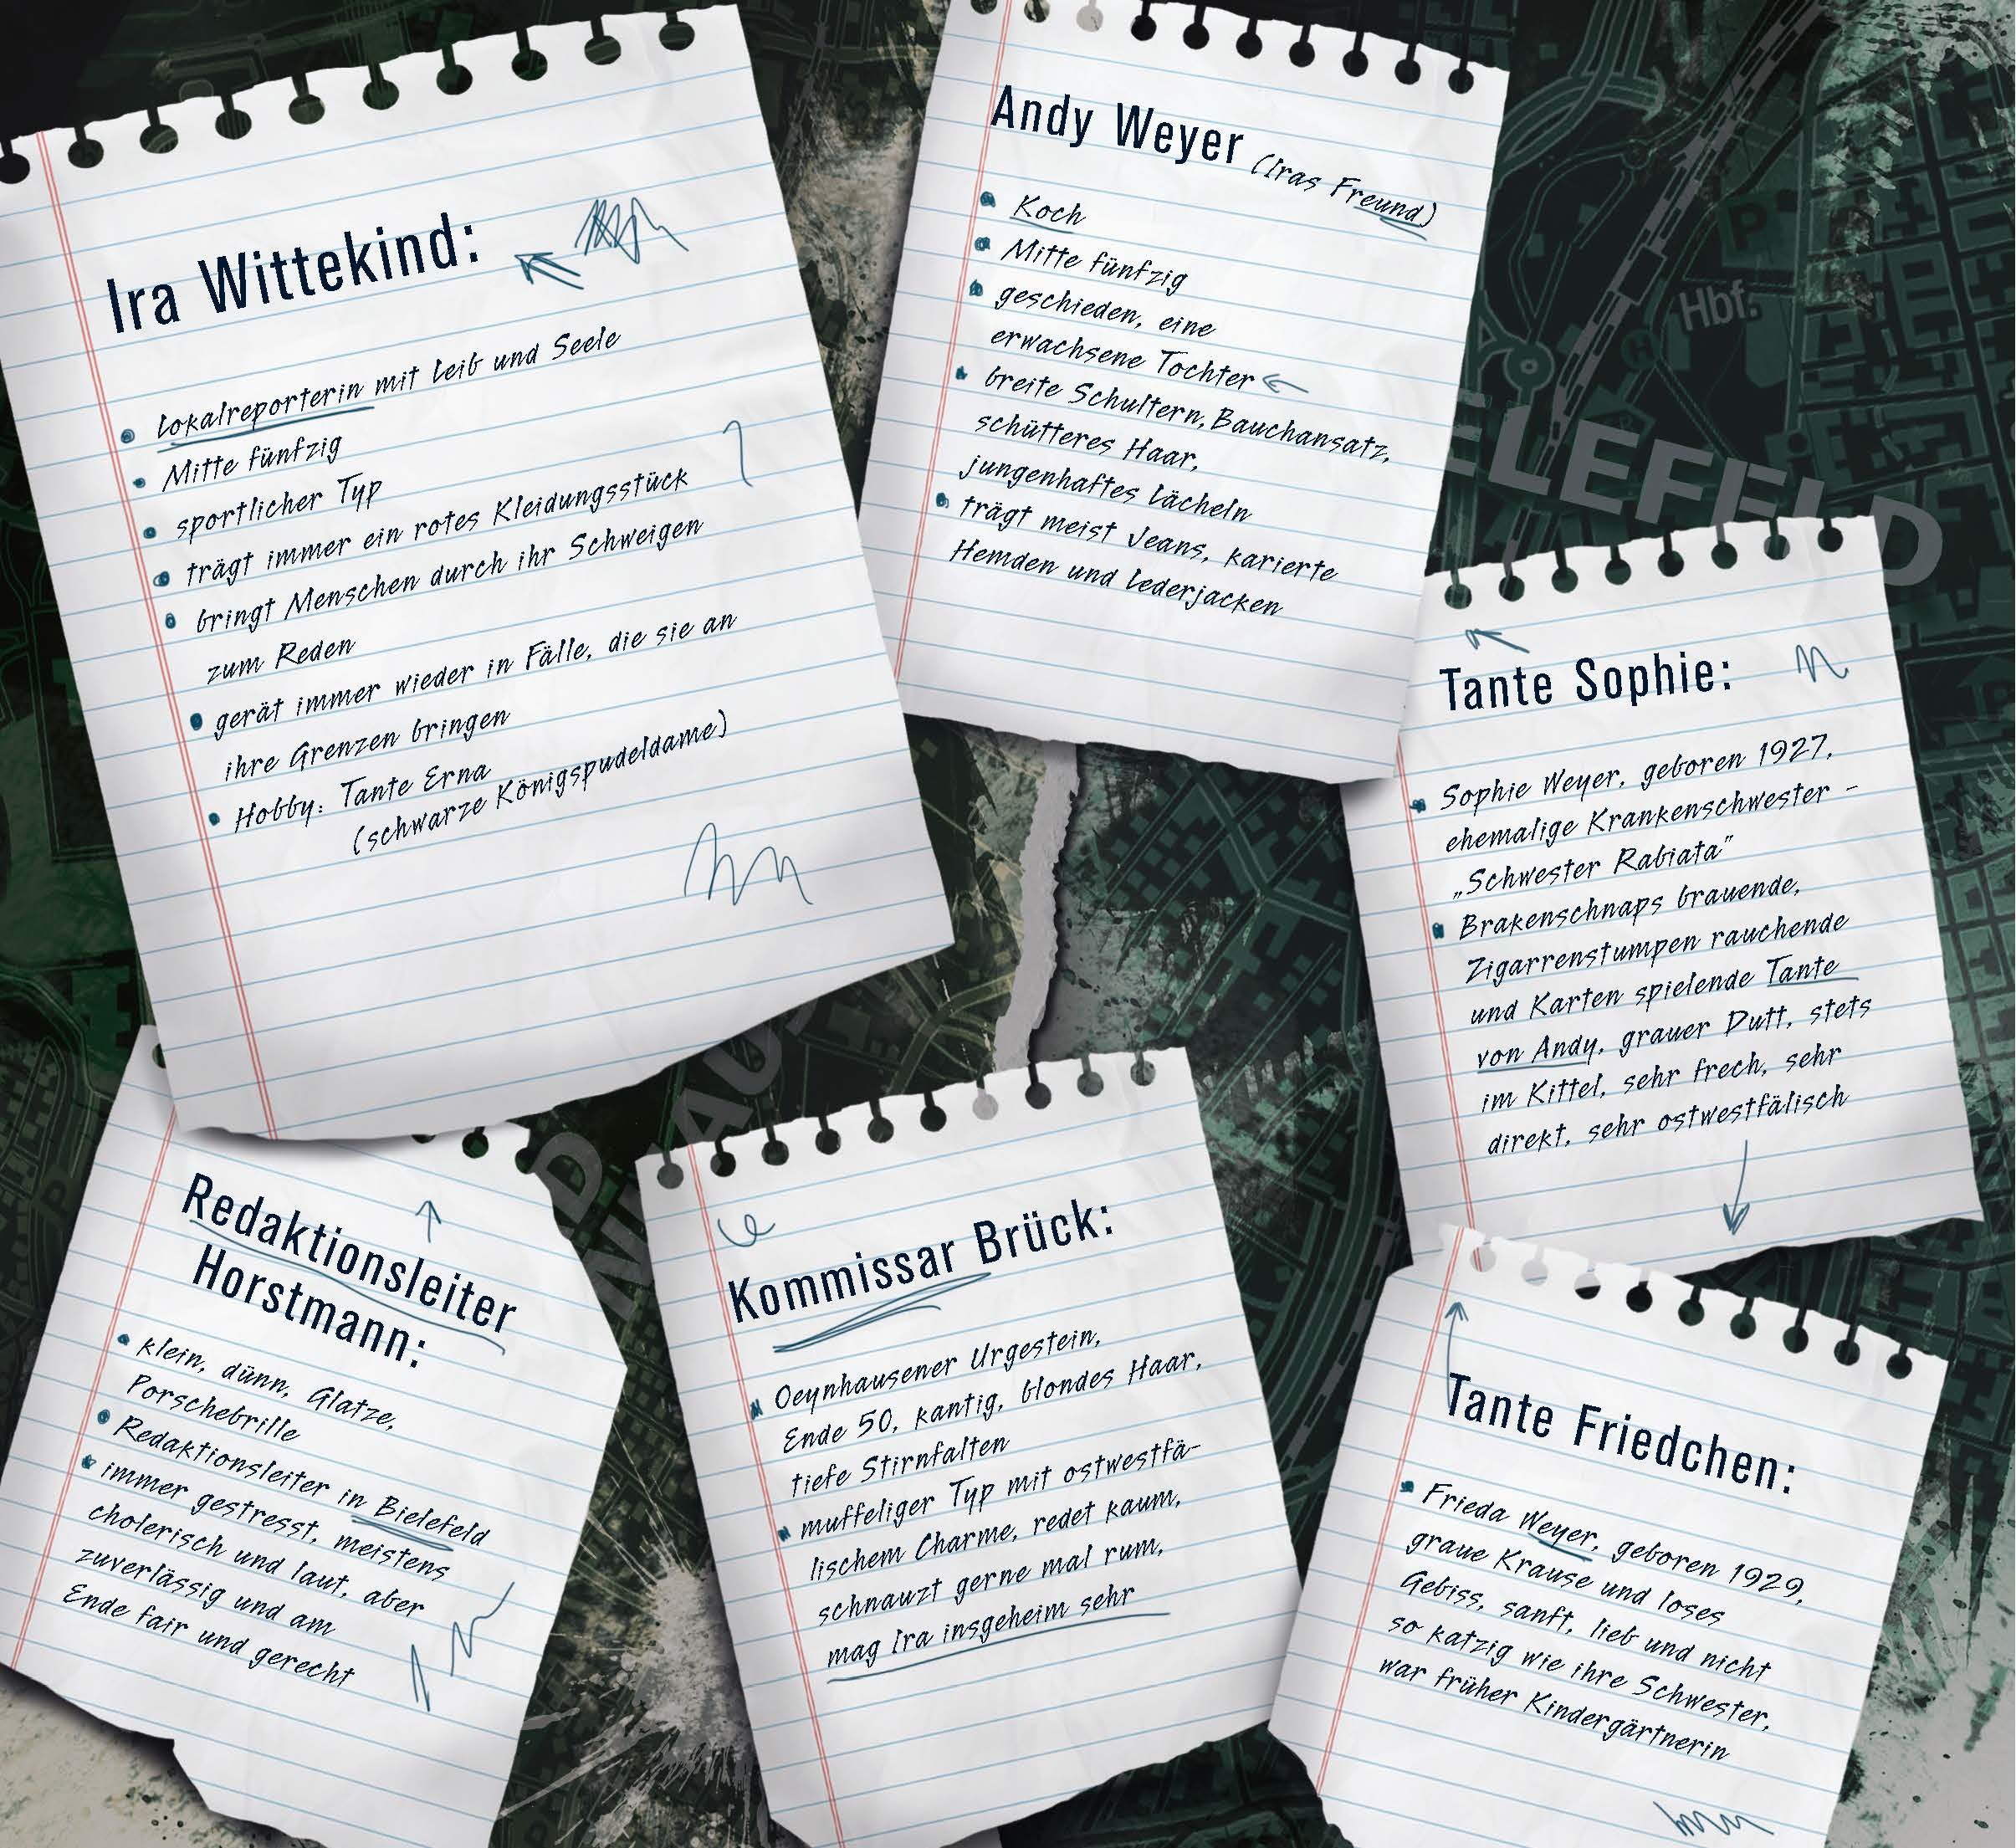 Ira Wittekind:
Lokalreporterin mit Leib und Seele
Mitte fünfzig
sportlicher Typ
trägt immer ein rotes Kleidungsstück
bringt Menschen durch ihr Schweigen
zum Reden
gerät immer wieder in Fälle, die sie an
ihre Grenzen bringen
Hobby: Tante Erna
(schwarze Königspudeldame)
Andy Weyer (Iras Freund)
Koch
Mitte fünfzig
geschieden, eine
erwachsene Tochter
breite Schultern, Bauchansatz,
schütteres Haar,
jungenhaftes Lächeln
trägt meist Jeans, karierte
Hemden und Lederjacken
Hbf.
P
ELEFELD
Tante Sophie:
Sophie Weyer, geboren 1927,
ehemalige Krankenschwester -
„Schwester Rabiata"
Brakenschnaps brauende,
Zigarrenstumpen rauchende
und Karten spielende Tante
von Andy, grauer Dutt, stets
im Kittel, sehr frech, sehr
direkt, sehr ostwestfälisch
Redaktionsleiter
Horstmann:
klein, dünn, Glatze,
Porschebrille
Redaktionsleiter in Bielefeld
immer gestresst, meistens
cholerisch und laut, aber
zuverlässig und am
Ende fair und gerecht
Kommissar Brück:
Oeynhausener Urgestein,
Ende 50, kantig, blondes Haar,
tiefe Stirnfalten
muffeliger Typ mit ostwestfä-
lischem Charme, redet kaum,
schnauzt gerne mal rum,
mag Ira insgeheim sehr
Tante Friedchen:
Frieda Weyer, geboren 1929,
graue Krause und loses
Gebiss, sanft, lieb und nicht
so katzig wie ihre Schwester,
war früher Kindergärtnerin